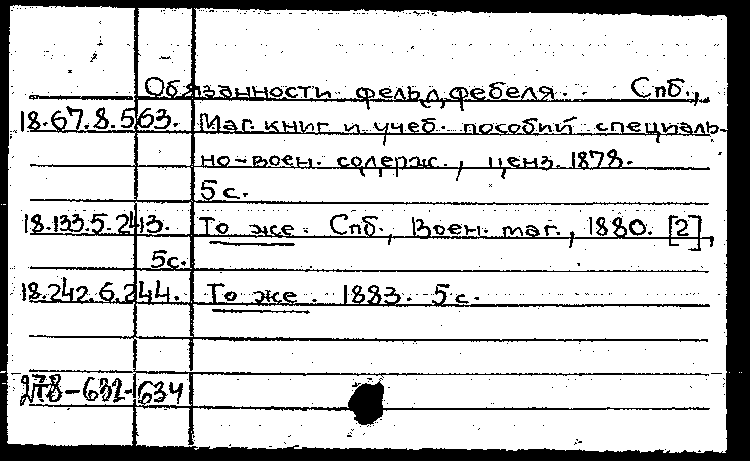 Обязанности фельдфебеля. Спб.,
18.67.8.563. Маг. книг и учеб. пособий специаль-
но-воен. содерж., ценз. 1878.
5 с.
18.133.5.243. То же. Спб., Воен. маг., 1880. [2],
5с.
18.242.6.244. То же. 1883. 5 с.
278-632-634